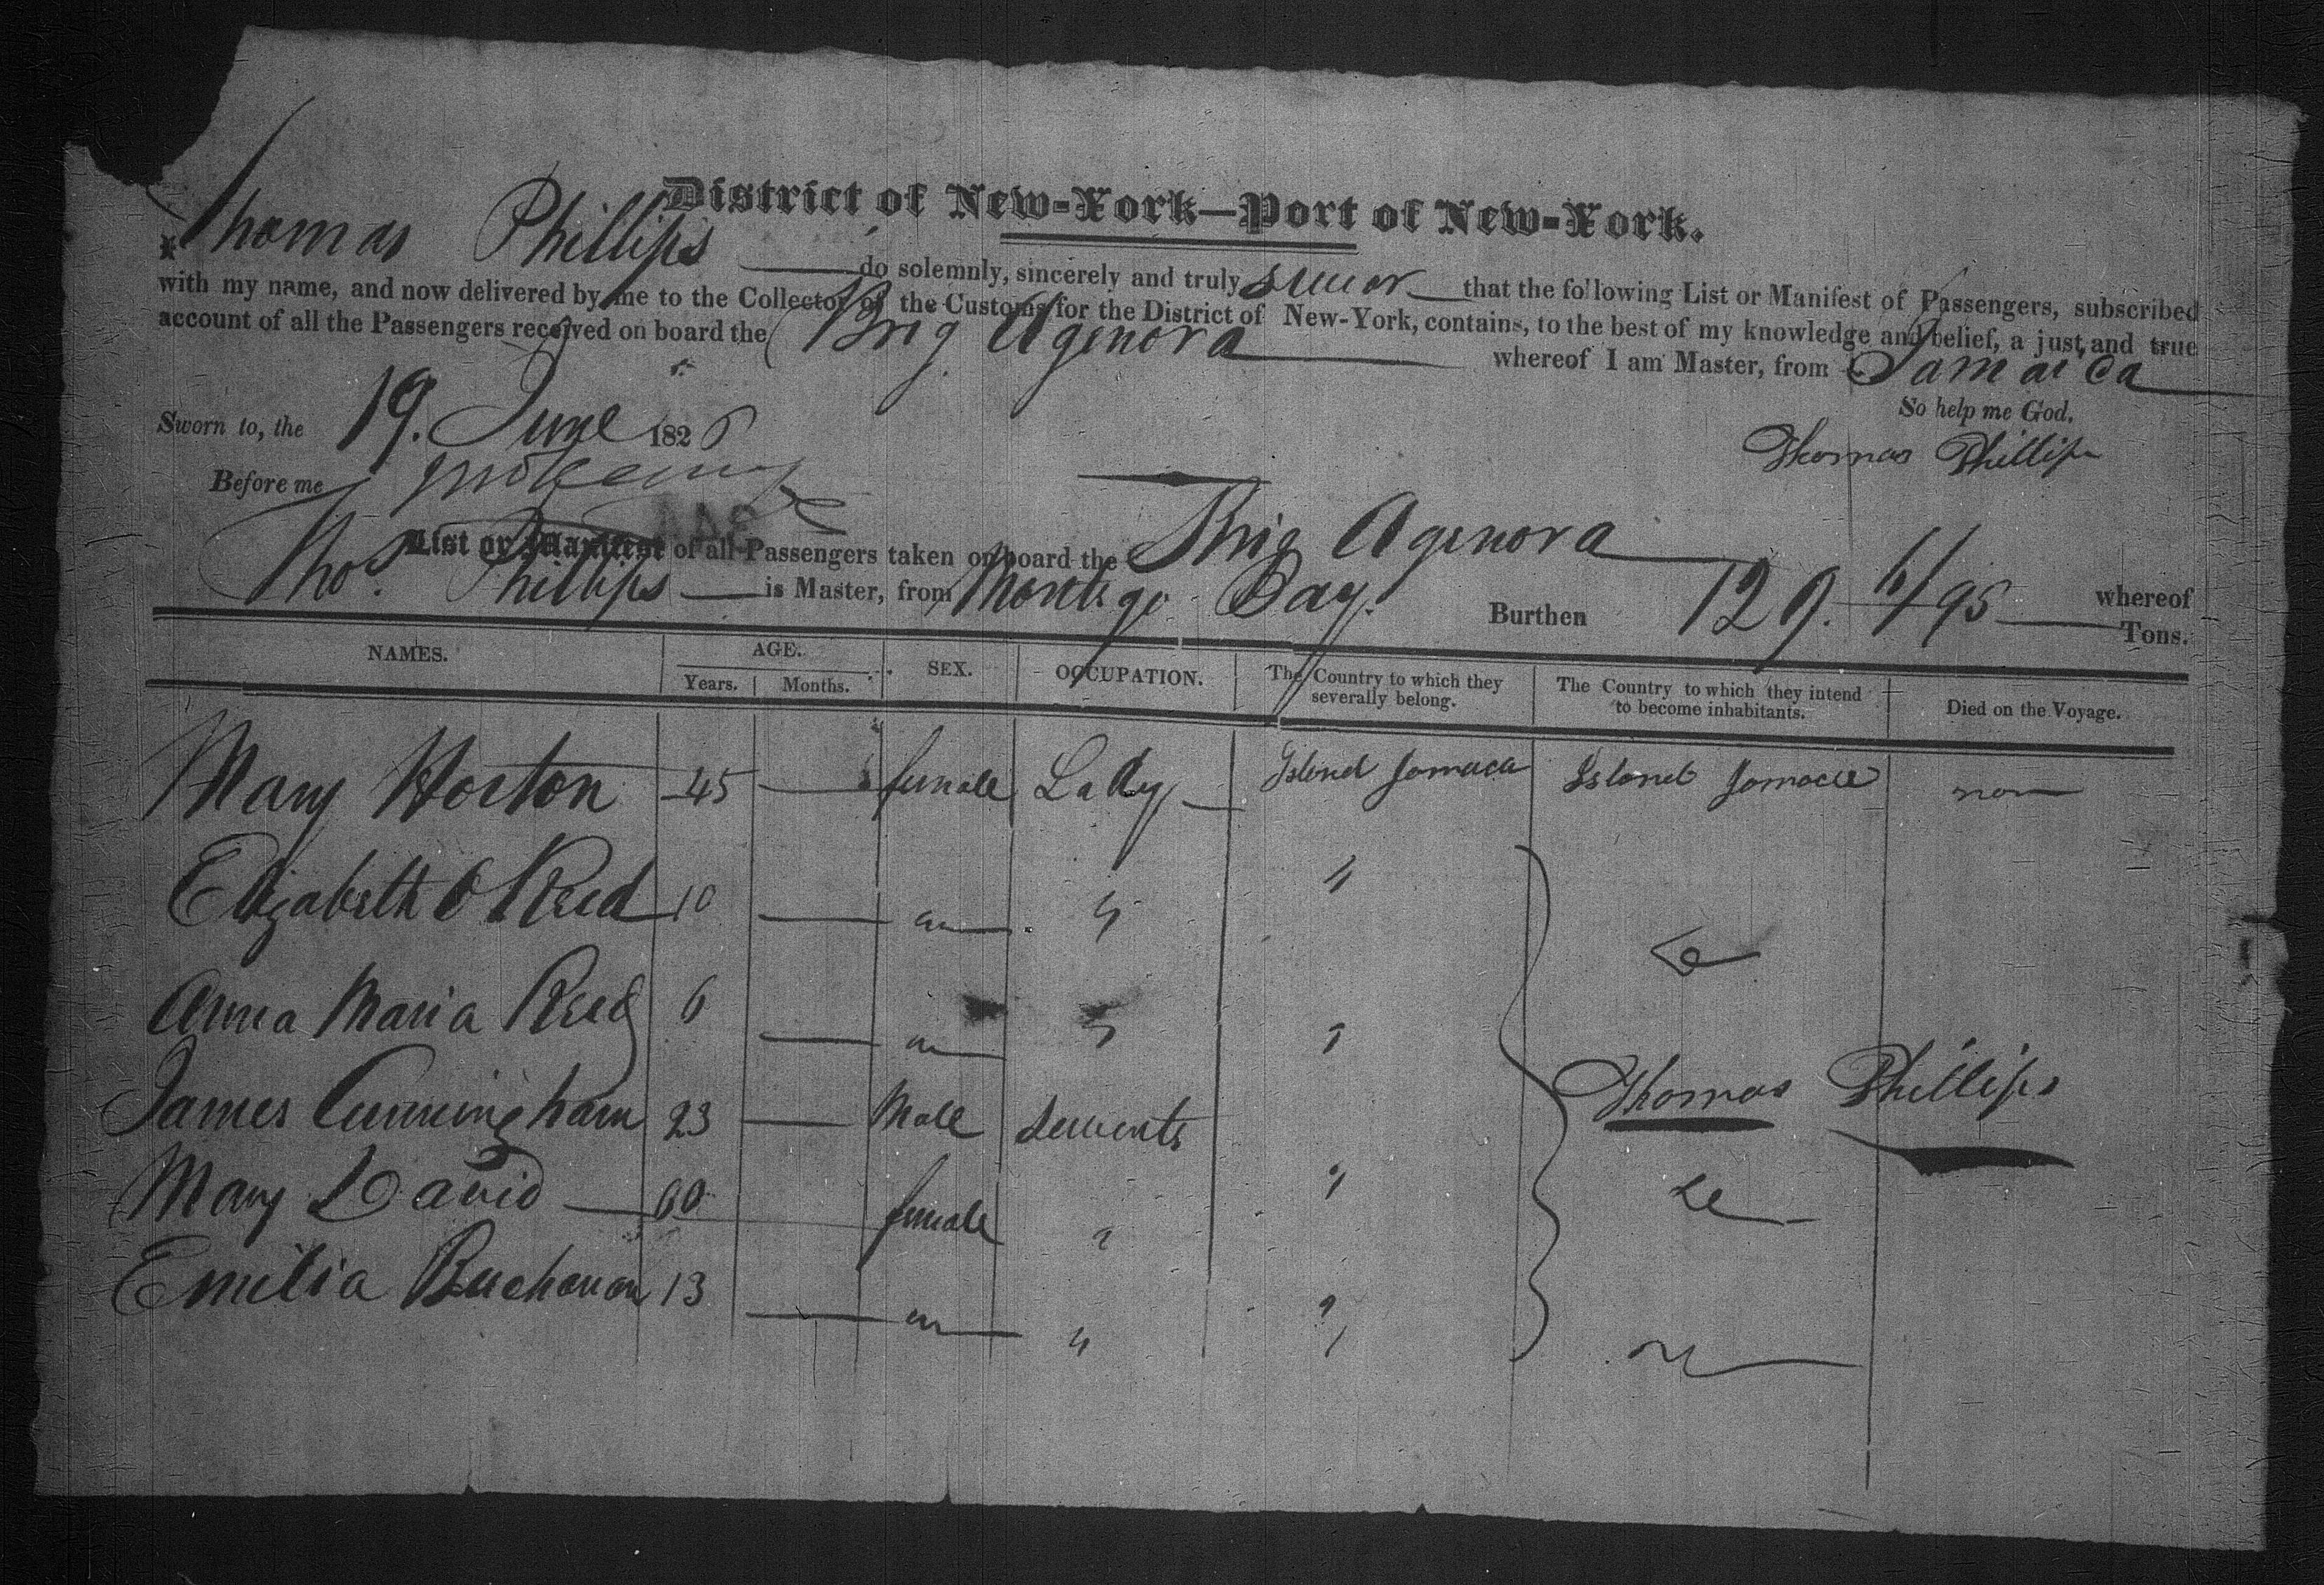 District of New-York—Port of New-York.
I, Thomas Phillips do solemnly, sincerely and truly swear that the following List or Manifest of Passengers, subscribed
with my name, and now delivered by me to the Collector of the Customs for the District of New-York, contains, to the best of my knowledge and belief, a just and true
account of all the Passengers received on board the Brig Agenora whereof I am Master, from Jamaica
So help me God.
Sworn to, the 19. June 1826
Thomas Phillips
Before me
List or Manifest of all Passengers taken on board the Brig Agenora whereof
Thos. Phillips is Master, from Montego Bay. Burthen 129. 6/95 Tons.
NAMES. AGE. SEX. OCCUPATION. The Country to which they severally belong. The Country to which they intend to become inhabitants. Died on the Voyage.
Years. Months.
Mary Horton 45 — female Lady Island Jamaca Island Jamaca non
Elizabeth O Reed 10 — " "
Anna Maria Reed 6 — " "
James Cunningham 23 — Male Servents "
Thomas Phillips
Mary David 60 female " "
Emilia Buchanan 13 — " "